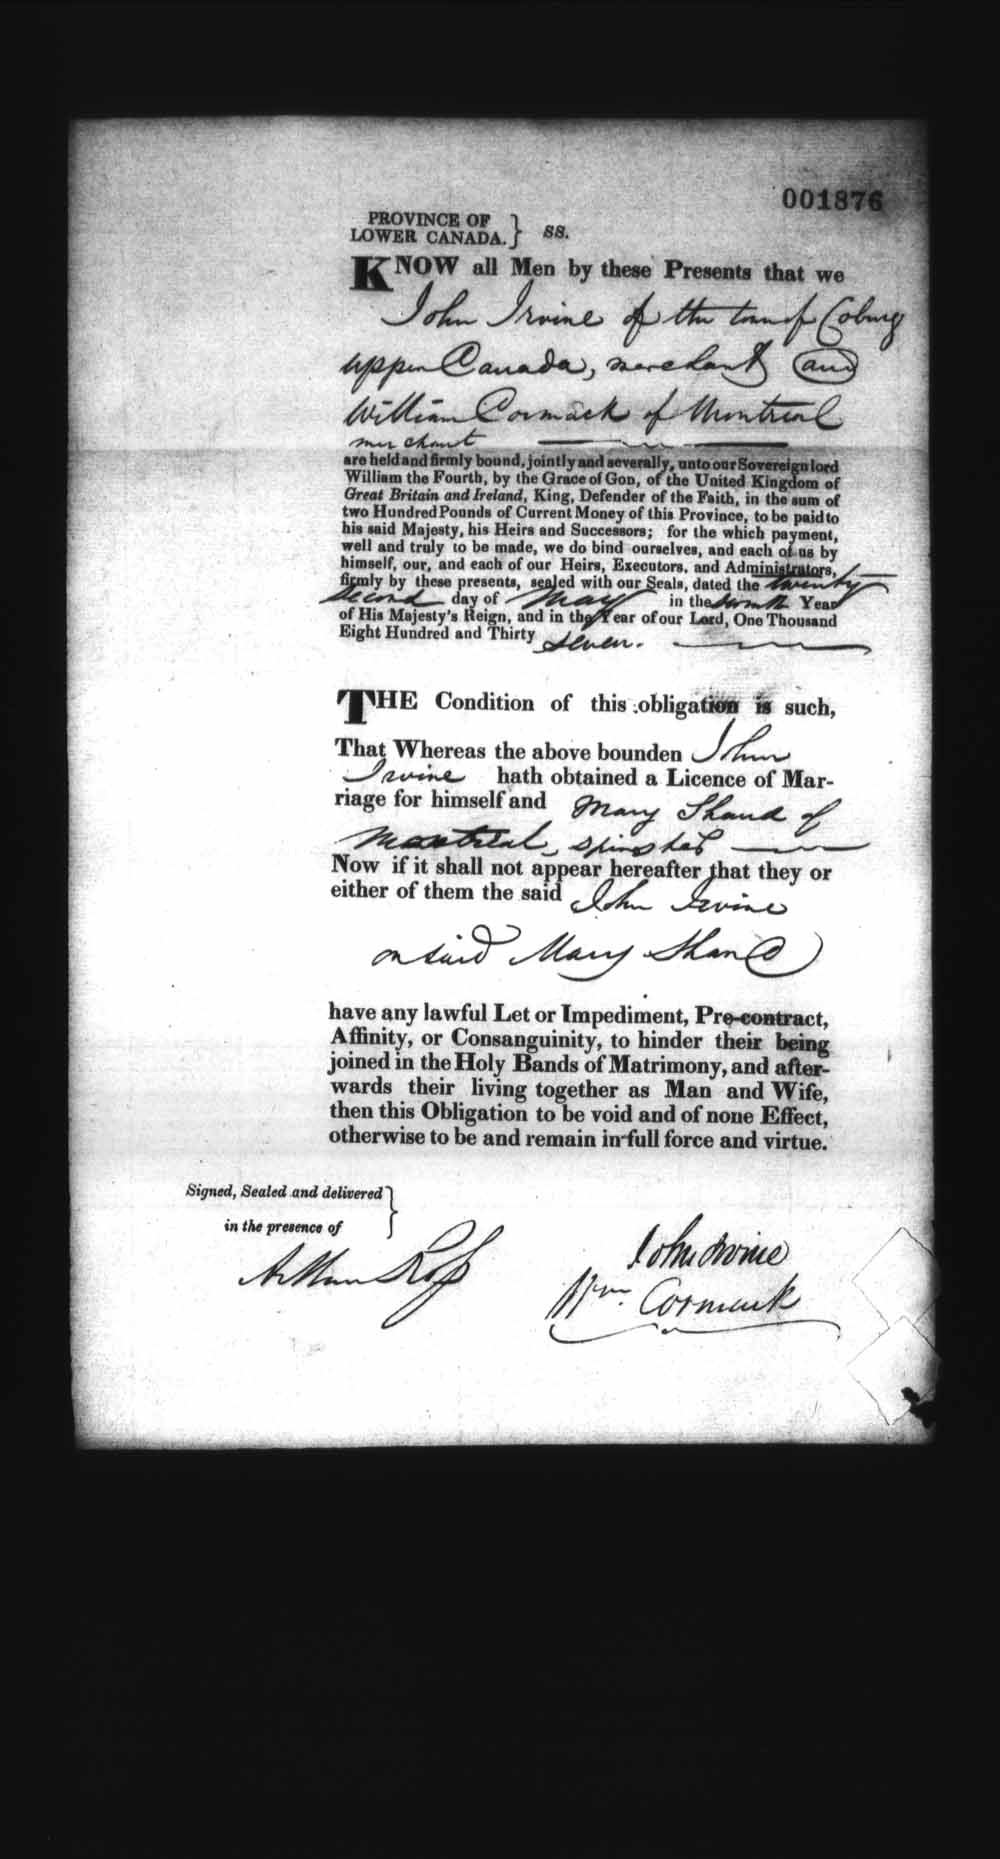 001876
PROVINCE OF
LOWER CANADA. } ss.
KNOW all Men by these Presents that we
John Irvine of the town of Coburg
upper Canada, merchant and
William Cormack of Montreal
merchant
are held and firmly bound, jointly and severally, unto our Sovereign lord
William the Fourth, by the Grace of GOD, of the United Kingdom of
Great Britain and Ireland, King, Defender of the Faith, in the sum of
two Hundred Pounds of Current Money of this Province, to be paid to
his said Majesty, his Heirs and Successors; for the which payment,
well and truly to be made, we do bind ourselves, and each of us by
himself, our, and each of our Heirs, Executors, and Administrators,
firmly by these presents, sealed with our Seals, dated the twenty
second day of May in the seventh Year
of His Majesty's Reign, and in the Year of our Lord, One Thousand
Eight Hundred and Thirty seven.
THE Condition of this obligation is such,
That Whereas the above bounden John
Irvine hath obtained a Licence of Mar-
riage for himself and Mary Shand of
Montreal, spinster
Now if it shall not appear hereafter that they or
either of them the said John Irvine
or said Mary Shand
have any lawful Let or Impediment, Pre-contract,
Affinity, or Consanguinity, to hinder their being
joined in the Holy Bands of Matrimony, and after-
wards their living together as Man and Wife,
then this Obligation to be void and of none Effect,
otherwise to be and remain in full force and virtue.
Signed, Sealed and delivered }
in the presence of
Arthur Ross
John Irvine
Wm. Cormack